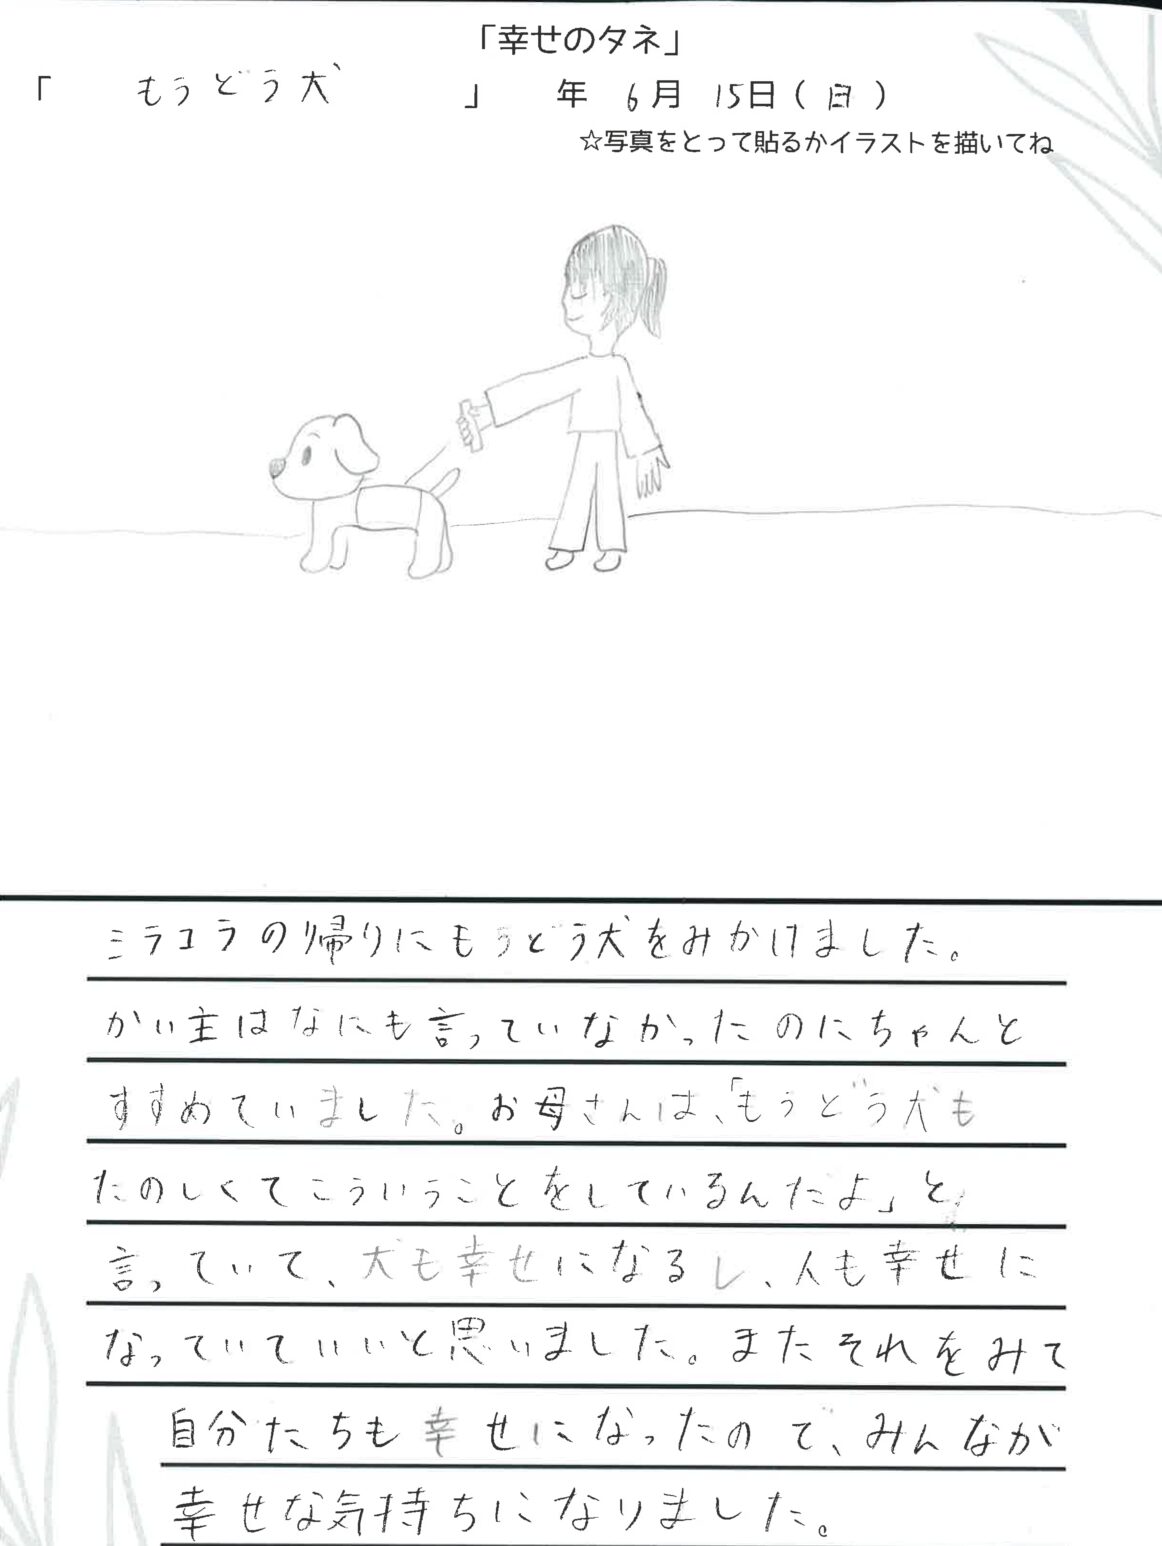 「幸せのタネ」
「 もうどう犬 」 年 6月 15日(日)
☆写真をとって貼るかイラストを描いてね
ミラコラの帰りにもうどう犬をみかけました。
かい主はなにも言っていなかったのにちゃんと
すすめていました。お母さんは、「もうどう犬も
たのしくてこういうことをしているんだよ」と
言っていて、犬も幸せになるし、人も幸せに
なっていていいと思いました。またそれをみて
自分たちも幸せになったので、みんなが
幸せな気持ちになりました。